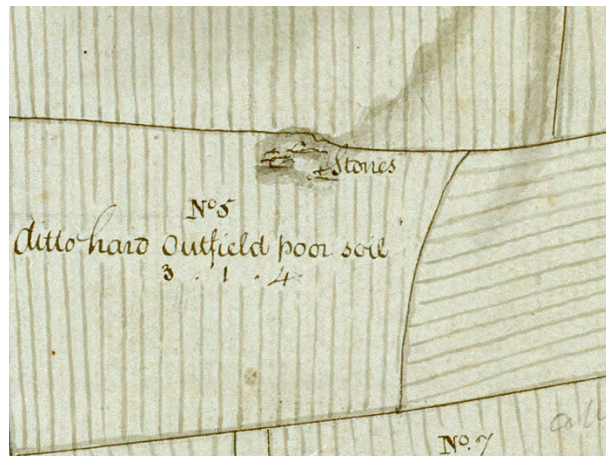 Stones
No 5
ditto hard Outfield poor soil
3 . 1 . 4
No. 7